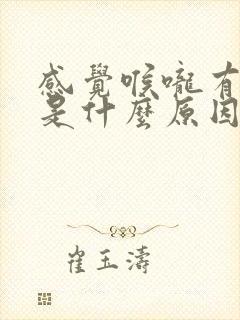 感覺喉嚨有
是什麼原因
崔玉濤